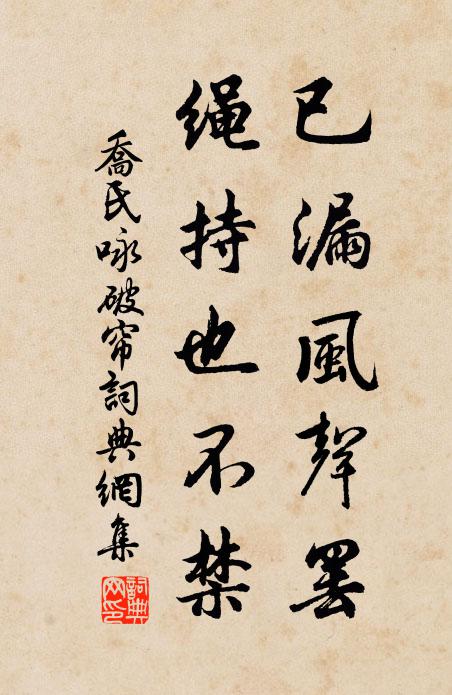 已漏風聲罢
绳持也不禁
喬氏咏破帘詞典網集
詞典网印